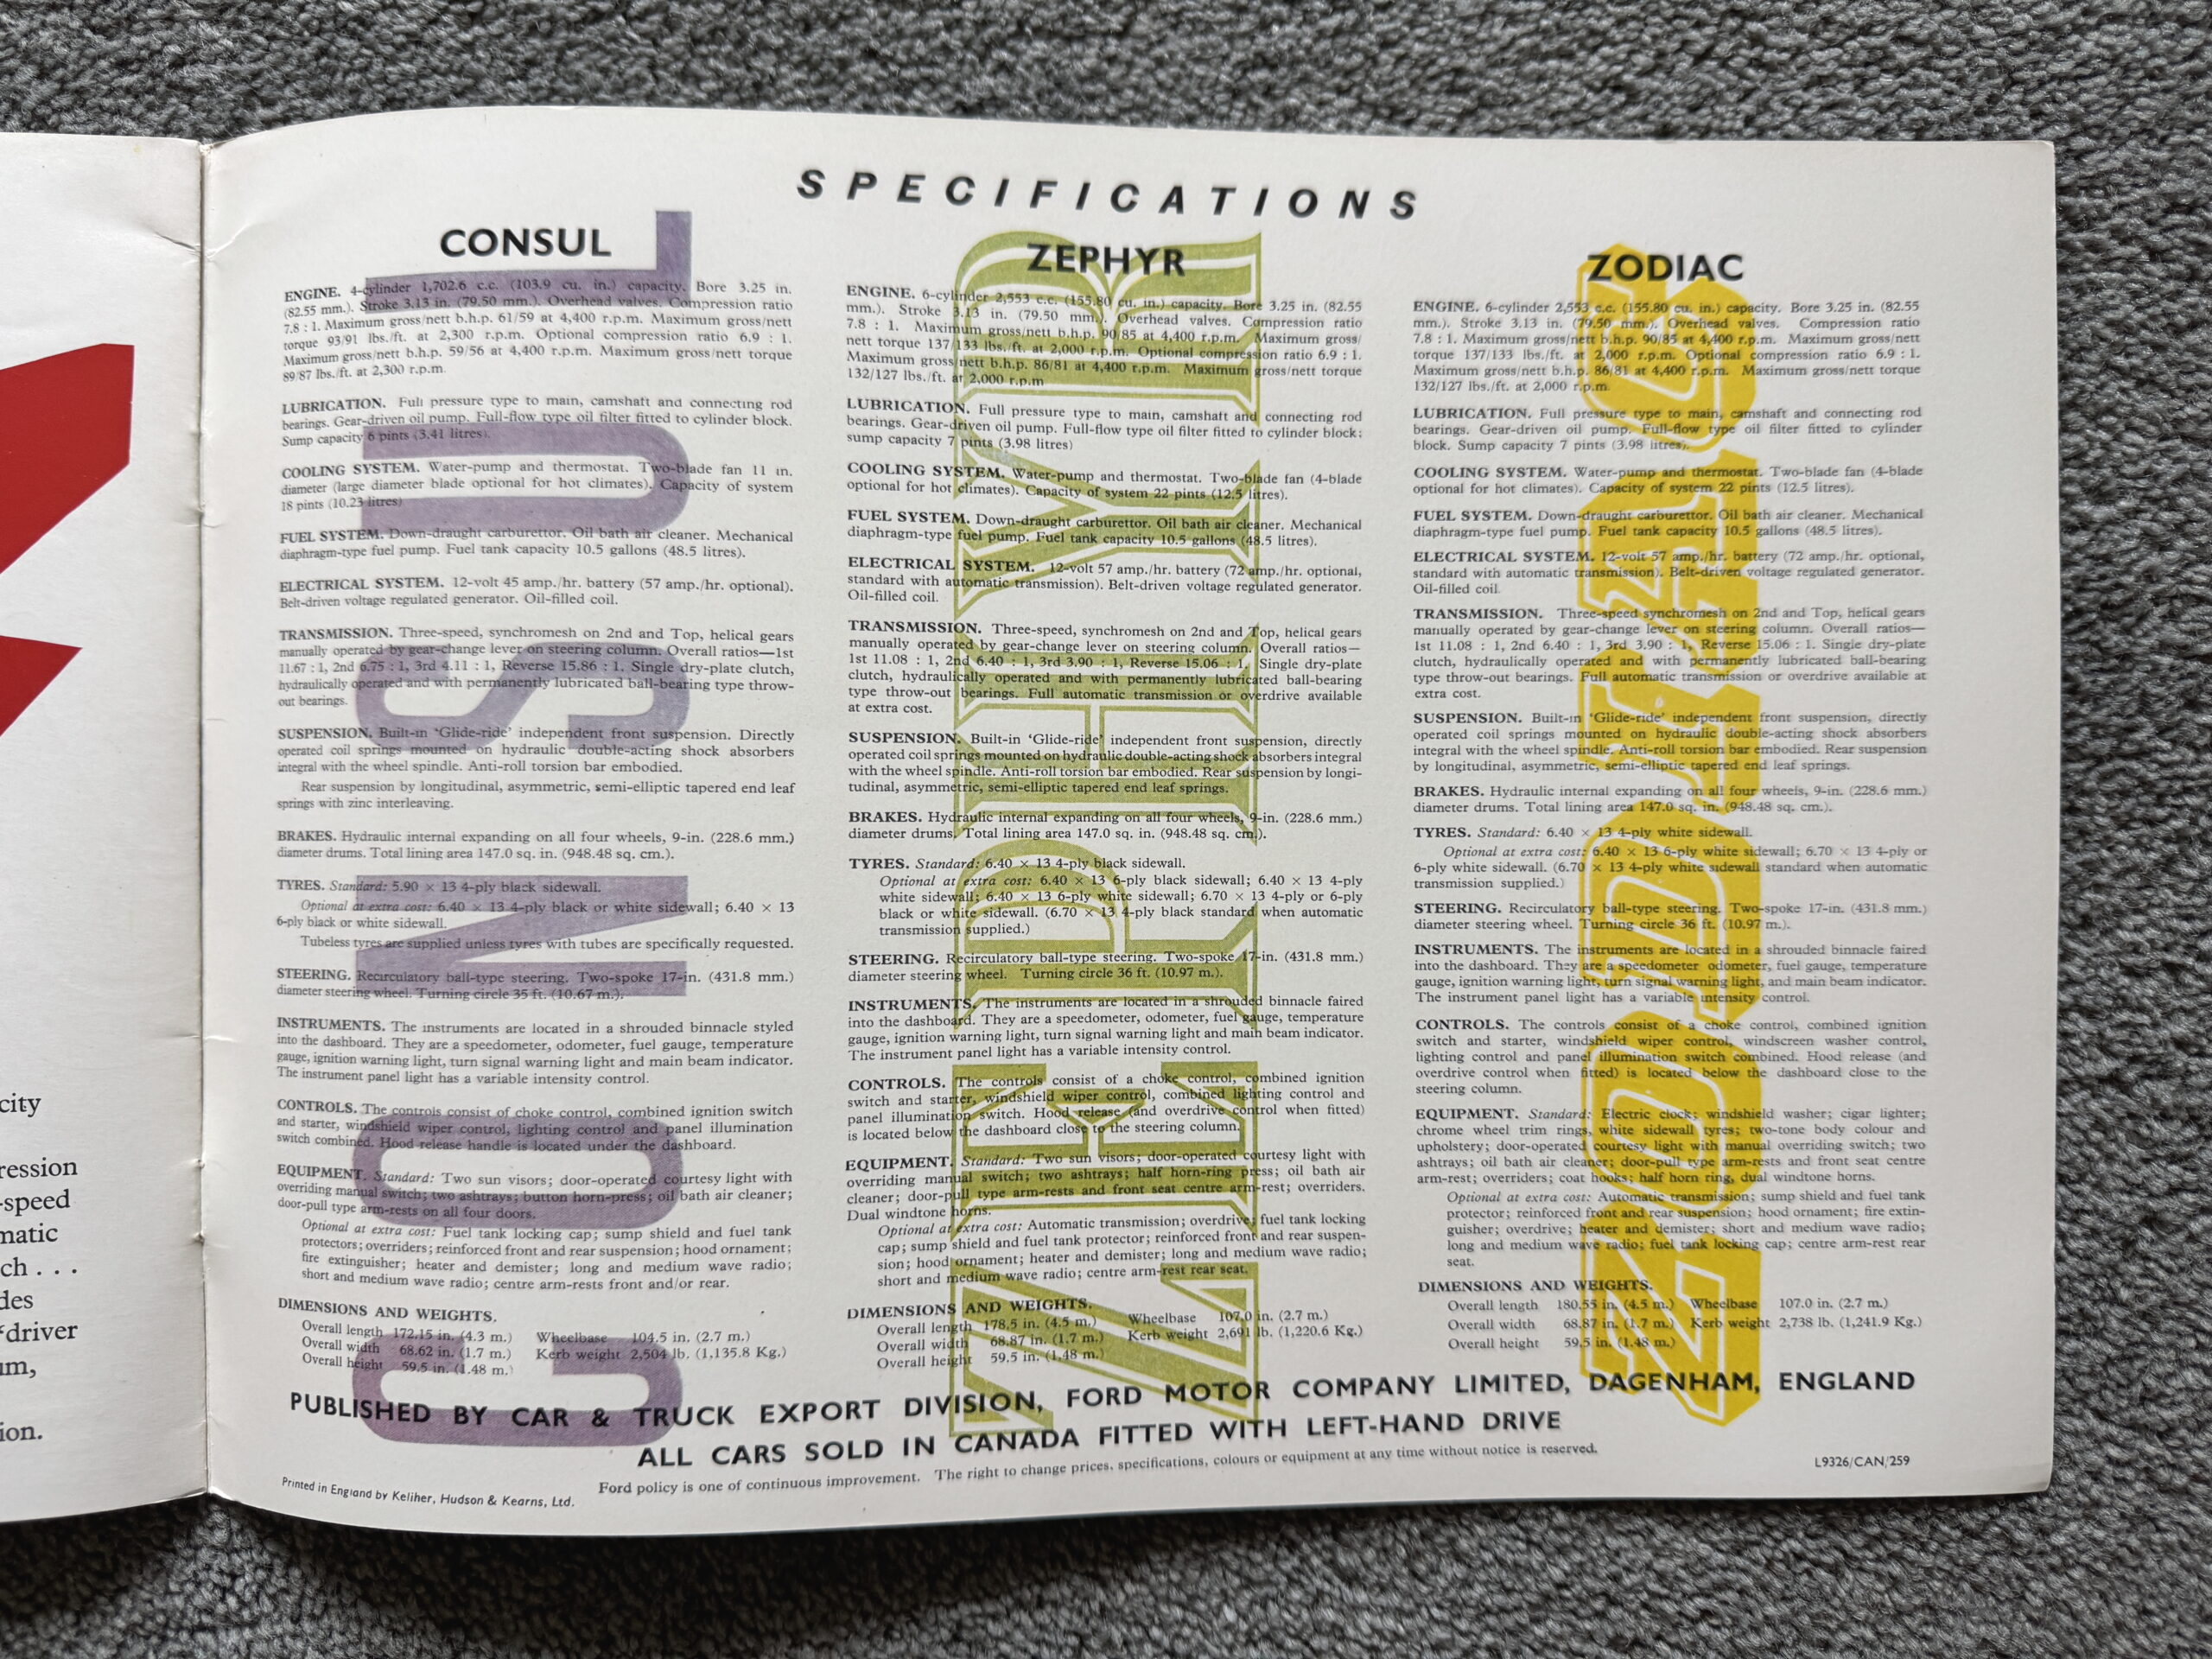 SPECIFICATIONS
CONSUL
ENGINE. 4-cylinder 1,702.6 c.c. (103.9 cu. in.) capacity. Bore 3.25 in.
(82.55 mm.). Stroke 3.13 in. (79.50 mm.). Overhead valves. Compression ratio
7.8 : 1. Maximum gross/nett b.h.p. 61/59 at 4,400 r.p.m. Maximum gross/nett
torque 93/91 lbs./ft. at 2,300 r.p.m. Optional compression ratio 6.9 : 1.
Maximum gross/nett b.h.p. 59/56 at 4,400 r.p.m. Maximum gross/nett torque
89/87 lbs./ft. at 2,300 r.p.m.
LUBRICATION. Full pressure type to main, camshaft and connecting rod
bearings. Gear-driven oil pump. Full-flow type oil filter fitted to cylinder block.
Sump capacity 6 pints (3.41 litres).
COOLING SYSTEM. Water-pump and thermostat. Two-blade fan 11 in.
diameter (large diameter blade optional for hot climates). Capacity of system
18 pints (10.23 litres)
FUEL SYSTEM. Down-draught carburettor. Oil bath air cleaner. Mechanical
diaphragm-type fuel pump. Fuel tank capacity 10.5 gallons (48.5 litres).
ELECTRICAL SYSTEM. 12-volt 45 amp./hr. battery (57 amp./hr. optional).
Belt-driven voltage regulated generator. Oil-filled coil.
TRANSMISSION. Three-speed, synchromesh on 2nd and Top, helical gears
manually operated by gear-change lever on steering column. Overall ratios—1st
11.67 : 1, 2nd 6.75 : 1, 3rd 4.11 : 1, Reverse 15.86 : 1. Single dry-plate clutch,
hydraulically operated and with permanently lubricated ball-bearing type throw-
out bearings.
SUSPENSION. Built-in ‘Glide-ride’ independent front suspension. Directly
operated coil springs mounted on hydraulic double-acting shock absorbers
integral with the wheel spindle. Anti-roll torsion bar embodied.
Rear suspension by longitudinal, asymmetric, semi-elliptic tapered end leaf
springs with zinc interleaving.
BRAKES. Hydraulic internal expanding on all four wheels, 9-in. (228.6 mm.)
diameter drums. Total lining area 147.0 sq. in. (948.48 sq. cm.).
TYRES. Standard: 5.90 × 13 4-ply black sidewall.
Optional at extra cost: 6.40 × 13 4-ply black or white sidewall; 6.40 × 13
6-ply black or white sidewall.
Tubeless tyres are supplied unless tyres with tubes are specifically requested.
STEERING. Recirculatory ball-type steering. Two-spoke 17-in. (431.8 mm.)
diameter steering wheel. Turning circle 35 ft. (10.67 m.).
INSTRUMENTS. The instruments are located in a shrouded binnacle styled
into the dashboard. They are a speedometer, odometer, fuel gauge, temperature
gauge, ignition warning light, turn signal warning light and main beam indicator.
The instrument panel light has a variable intensity control.
CONTROLS. The controls consist of choke control, combined ignition switch
and starter, windshield wiper control, lighting control and panel illumination
switch combined. Hood release handle is located under the dashboard.
EQUIPMENT. Standard: Two sun visors; door-operated courtesy light with
overriding manual switch; two ashtrays; button horn-press; oil bath air cleaner;
door-pull type arm-rests on all four doors.
Optional at extra cost: Fuel tank locking cap; sump shield and fuel tank
protectors; overriders; reinforced front and rear suspension; hood ornament;
fire extinguisher; heater and demister; long and medium wave radio;
short and medium wave radio; centre arm-rests front and/or rear.
DIMENSIONS AND WEIGHTS.
Overall length 172.15 in. (4.3 m.) Wheelbase 104.5 in. (2.7 m.)
Overall width 68.62 in. (1.7 m.) Kerb weight 2,504 lb. (1,135.8 Kg.)
Overall height 59.5 in. (1.48 m.)
CONSUL
ZEPHYR
ENGINE. 6-cylinder 2,553 c.c. (155.80 cu. in.) capacity. Bore 3.25 in. (82.55
mm.). Stroke 3.13 in. (79.50 mm.). Overhead valves. Compression ratio
7.8 : 1. Maximum gross/nett b.h.p. 90/85 at 4,400 r.p.m. Maximum gross/
nett torque 137/133 lbs./ft. at 2,000 r.p.m. Optional compression ratio 6.9 : 1.
Maximum gross/nett b.h.p. 86/81 at 4,400 r.p.m. Maximum gross/nett torque
132/127 lbs./ft. at 2,000 r.p.m
LUBRICATION. Full pressure type to main, camshaft and connecting rod
bearings. Gear-driven oil pump. Full-flow type oil filter fitted to cylinder block;
sump capacity 7 pints (3.98 litres)
COOLING SYSTEM. Water-pump and thermostat. Two-blade fan (4-blade
optional for hot climates). Capacity of system 22 pints (12.5 litres).
FUEL SYSTEM. Down-draught carburettor. Oil bath air cleaner. Mechanical
diaphragm-type fuel pump. Fuel tank capacity 10.5 gallons (48.5 litres).
ELECTRICAL SYSTEM. 12-volt 57 amp./hr. battery (72 amp./hr. optional,
standard with automatic transmission). Belt-driven voltage regulated generator.
Oil-filled coil.
TRANSMISSION. Three-speed, synchromesh on 2nd and Top, helical gears
manually operated by gear-change lever on steering column. Overall ratios—
1st 11.08 : 1, 2nd 6.40 : 1, 3rd 3.90 : 1, Reverse 15.06 : 1. Single dry-plate
clutch, hydraulically operated and with permanently lubricated ball-bearing
type throw-out bearings. Full automatic transmission or overdrive available
at extra cost.
SUSPENSION. Built-in ‘Glide-ride’ independent front suspension, directly
operated coil springs mounted on hydraulic double-acting shock absorbers integral
with the wheel spindle. Anti-roll torsion bar embodied. Rear suspension by longi-
tudinal, asymmetric, semi-elliptic tapered end leaf springs.
BRAKES. Hydraulic internal expanding on all four wheels, 9-in. (228.6 mm.)
diameter drums. Total lining area 147.0 sq. in. (948.48 sq. cm.).
TYRES. Standard: 6.40 × 13 4-ply black sidewall.
Optional at extra cost: 6.40 × 13 6-ply black sidewall; 6.40 × 13 4-ply
white sidewall; 6.40 × 13 6-ply white sidewall; 6.70 × 13 4-ply or 6-ply
black or white sidewall. (6.70 × 13 4-ply black standard when automatic
transmission supplied.)
STEERING. Recirculatory ball-type steering. Two-spoke 17-in. (431.8 mm.)
diameter steering wheel. Turning circle 36 ft. (10.97 m.).
INSTRUMENTS. The instruments are located in a shrouded binnacle faired
into the dashboard. They are a speedometer, odometer, fuel gauge, temperature
gauge, ignition warning light, turn signal warning light and main beam indicator.
The instrument panel light has a variable intensity control.
CONTROLS. The controls consist of a choke control, combined ignition
switch and starter, windshield wiper control, combined lighting control and
panel illumination switch. Hood release (and overdrive control when fitted)
is located below the dashboard close to the steering column.
EQUIPMENT. Standard: Two sun visors; door-operated courtesy light with
overriding manual switch; two ashtrays; half horn-ring press; oil bath air
cleaner; door-pull type arm-rests and front seat centre arm-rest; overriders.
Dual windtone horns.
Optional at extra cost: Automatic transmission; overdrive; fuel tank locking
cap; sump shield and fuel tank protector; reinforced front and rear suspen-
sion; hood ornament; heater and demister; long and medium wave radio;
short and medium wave radio; centre arm-rest rear seat.
DIMENSIONS AND WEIGHTS.
Overall length 178.5 in. (4.5 m.) Wheelbase 107.0 in. (2.7 m.)
Overall width 68.87 in. (1.7 m.) Kerb weight 2,691 lb. (1,220.6 Kg.)
Overall height 59.5 in. (1.48 m.)
ZEPHYR
ZODIAC
ENGINE. 6-cylinder 2,553 c.c. (155.80 cu. in.) capacity. Bore 3.25 in. (82.55
mm.). Stroke 3.13 in. (79.50 mm.). Overhead valves. Compression ratio
7.8 : 1. Maximum gross/nett b.h.p. 90/85 at 4,400 r.p.m. Maximum gross/nett
torque 137/133 lbs./ft. at 2,000 r.p.m. Optional compression ratio 6.9 : 1.
Maximum gross/nett b.h.p. 86/81 at 4,400 r.p.m. Maximum gross/nett torque
132/127 lbs./ft. at 2,000 r.p.m.
LUBRICATION. Full pressure type to main, camshaft and connecting rod
bearings. Gear-driven oil pump. Full-flow type oil filter fitted to cylinder
block. Sump capacity 7 pints (3.98 litres).
COOLING SYSTEM. Water-pump and thermostat. Two-blade fan (4-blade
optional for hot climates). Capacity of system 22 pints (12.5 litres).
FUEL SYSTEM. Down-draught carburettor. Oil bath air cleaner. Mechanical
diaphragm-type fuel pump. Fuel tank capacity 10.5 gallons (48.5 litres).
ELECTRICAL SYSTEM. 12-volt 57 amp./hr. battery (72 amp./hr. optional,
standard with automatic transmission). Belt-driven voltage regulated generator.
Oil-filled coil.
TRANSMISSION. Three-speed synchromesh on 2nd and Top, helical gears
manually operated by gear-change lever on steering column. Overall ratios—
1st 11.08 : 1, 2nd 6.40 : 1, 3rd 3.90 : 1, Reverse 15.06 : 1. Single dry-plate
clutch, hydraulically operated and with permanently lubricated ball-bearing
type throw-out bearings. Full automatic transmission or overdrive available at
extra cost.
SUSPENSION. Built-in ‘Glide-ride’ independent front suspension, directly
operated coil springs mounted on hydraulic double-acting shock absorbers
integral with the wheel spindle. Anti-roll torsion bar embodied. Rear suspension
by longitudinal, asymmetric, semi-elliptic tapered end leaf springs.
BRAKES. Hydraulic internal expanding on all four wheels, 9-in. (228.6 mm.)
diameter drums. Total lining area 147.0 sq. in. (948.48 sq. cm.).
TYRES. Standard: 6.40 × 13 4-ply white sidewall.
Optional at extra cost: 6.40 × 13 6-ply white sidewall; 6.70 × 13 4-ply or
6-ply white sidewall. (6.70 × 13 4-ply white sidewall standard when automatic
transmission supplied.)
STEERING. Recirculatory ball-type steering. Two-spoke 17-in. (431.8 mm.)
diameter steering wheel. Turning circle 36 ft. (10.97 m.).
INSTRUMENTS. The instruments are located in a shrouded binnacle faired
into the dashboard. They are a speedometer odometer, fuel gauge, temperature
gauge, ignition warning light, turn signal warning light, and main beam indicator.
The instrument panel light has a variable intensity control.
CONTROLS. The controls consist of a choke control, combined ignition
switch and starter, windshield wiper control, windscreen washer control,
lighting control and panel illumination switch combined. Hood release (and
overdrive control when fitted) is located below the dashboard close to the
steering column.
EQUIPMENT. Standard: Electric clock; windshield washer; cigar lighter;
chrome wheel trim rings, white sidewall tyres; two-tone body colour and
upholstery; door-operated courtesy light with manual overriding switch; two
ashtrays; oil bath air cleaner; door-pull type arm-rests and front seat centre
arm-rest; overriders; coat hooks; half horn ring, dual windtone horns.
Optional at extra cost: Automatic transmission; sump shield and fuel tank
protector; reinforced front and rear suspension; hood ornament; fire extin-
guisher; overdrive; heater and demister; short and medium wave radio;
long and medium wave radio; fuel tank locking cap; centre arm-rest rear
seat.
DIMENSIONS AND WEIGHTS.
Overall length 180.55 in. (4.5 m.) Wheelbase 107.0 in. (2.7 m.)
Overall width 68.87 in. (1.7 m.) Kerb weight 2,738 lb. (1,241.9 Kg.)
Overall height 59.5 in. (1.48 m.)
ZODIAC
PUBLISHED BY CAR & TRUCK EXPORT DIVISION, FORD MOTOR COMPANY LIMITED, DAGENHAM, ENGLAND
ALL CARS SOLD IN CANADA FITTED WITH LEFT-HAND DRIVE
Ford policy is one of continuous improvement. The right to change prices, specifications, colours or equipment at any time without notice is reserved.
Printed in England by Keliher, Hudson & Kearns, Ltd.
L9326/CAN/259
city
ression
-speed
matic
ch . . .
des
‘driver
um,
ion.